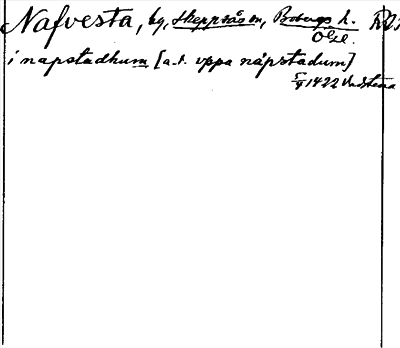 Nafvesta, by, Skeppsås sn, Bobergs h.
Ögl.
i napstadhum [a.t. vppa napstadum]
5/9 1422 Vadstena